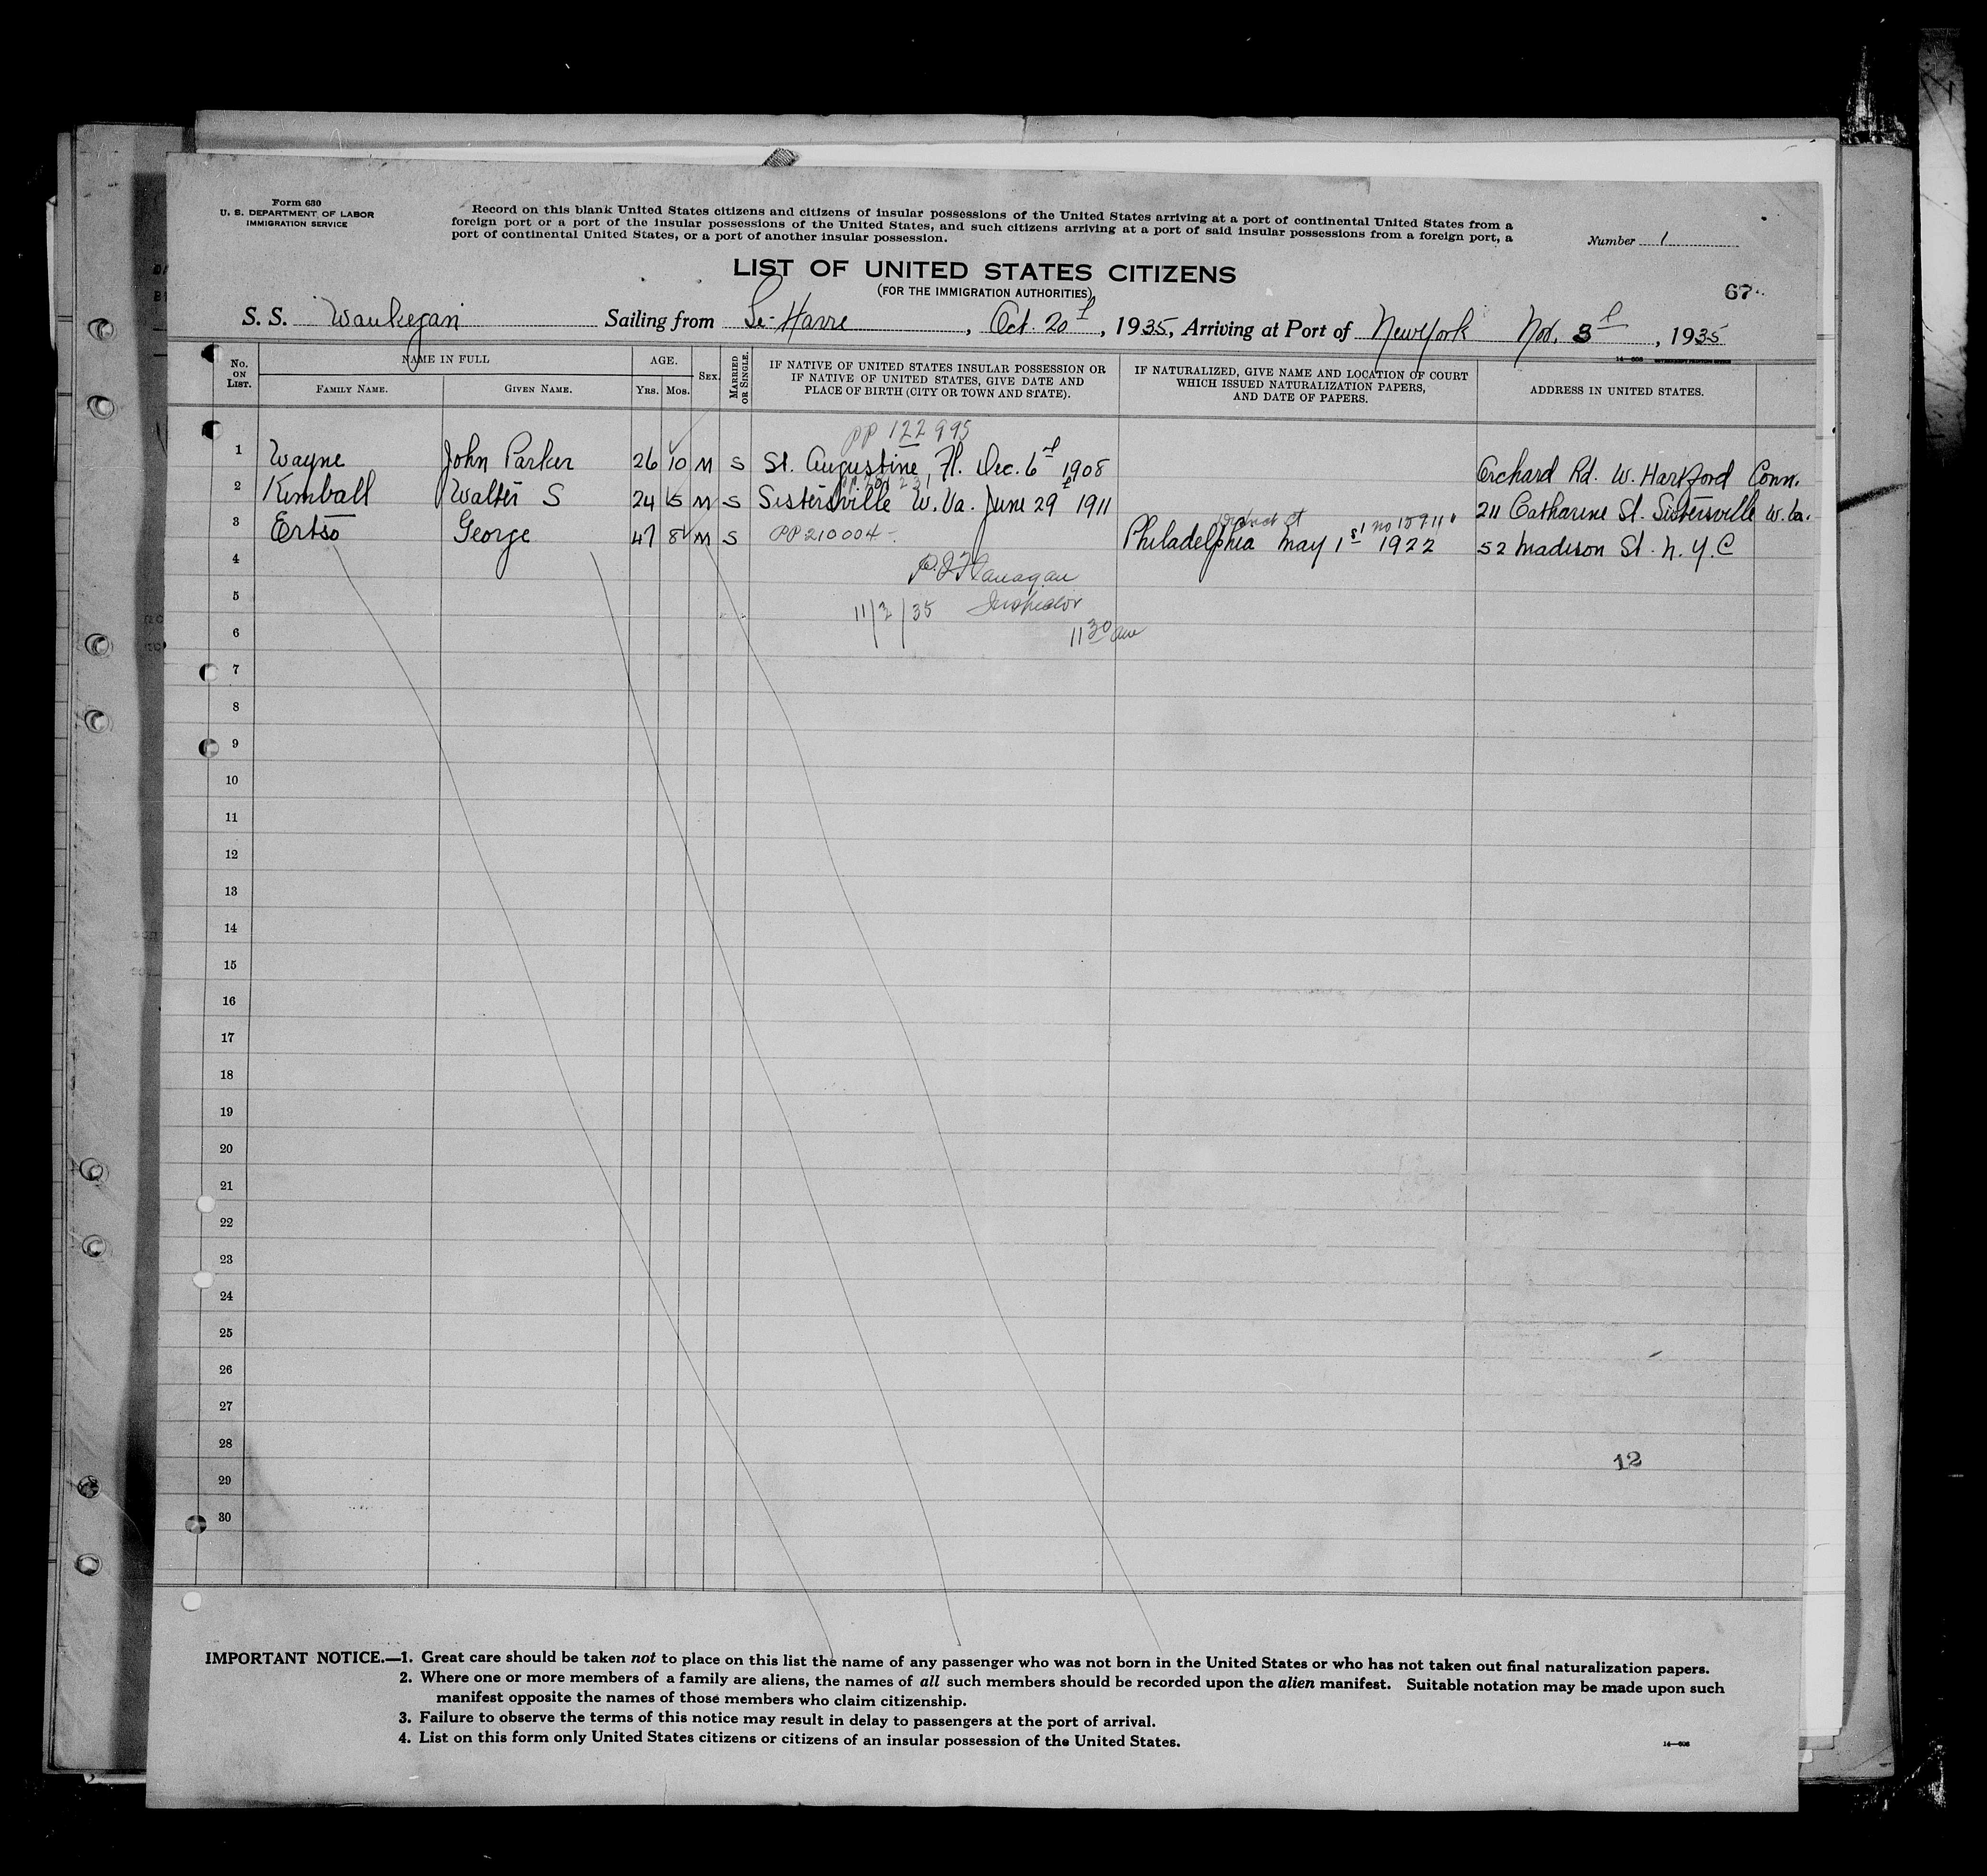 Form 630
U. S. DEPARTMENT OF LABOR
IMMIGRATION SERVICE
Record on this blank United States citizens and citizens of insular possessions of the United States arriving at a port of continental United States from a
foreign port or a port of the insular possessions of the United States, and such citizens arriving at a port of said insular possessions from a foreign port, a
port of continental United States, or a port of another insular possession.
Number 1
LIST OF UNITED STATES CITIZENS
(FOR THE IMMIGRATION AUTHORITIES)
67
S. S. Waukegan Sailing from Le-Havre, Oct. 20, 1935, Arriving at Port of New York Nov. 3, 1935
No. ON LIST. NAME IN FULL FAMILY NAME. GIVEN NAME. AGE. YRS. MOS. SEX. MARRIED OR SINGLE. IF NATIVE OF UNITED STATES INSULAR POSSESSION OR IF NATIVE OF UNITED STATES, GIVE DATE AND PLACE OF BIRTH (CITY OR TOWN AND STATE). IF NATURALIZED, GIVE NAME AND LOCATION OF COURT WHICH ISSUED NATURALIZATION PAPERS, AND DATE OF PAPERS. ADDRESS IN UNITED STATES.
PP 122995
1 Wayne John Parker 26 10 M S St. Augustine, Fl. Dec. 6 1908 Orchard Rd. W. Hartford Conn.
2 Kimball Walter S 24 5 M S Sistersville W. Va. June 29 1911 211 Catharine St. Sistersville W. Va.
3 Ertso George 47 8 M S PP 210004 - Philadelphia May 1st 1922 52 Madison St. N. Y. C
4 Flanagan
5 11/2/35 Inspector
6 11 30 am
7
8
9
10
11
12
13
14
15
16
17
18
19
20
21
22
23
24
25
26
27
28
12
29
30
IMPORTANT NOTICE.—1. Great care should be taken not to place on this list the name of any passenger who was not born in the United States or who has not taken out final naturalization papers.
2. Where one or more members of a family are aliens, the names of all such members should be recorded upon the alien manifest. Suitable notation may be made upon such
manifest opposite the names of those members who claim citizenship.
3. Failure to observe the terms of this notice may result in delay to passengers at the port of arrival.
4. List on this form only United States citizens or citizens of an insular possession of the United States.
14—606